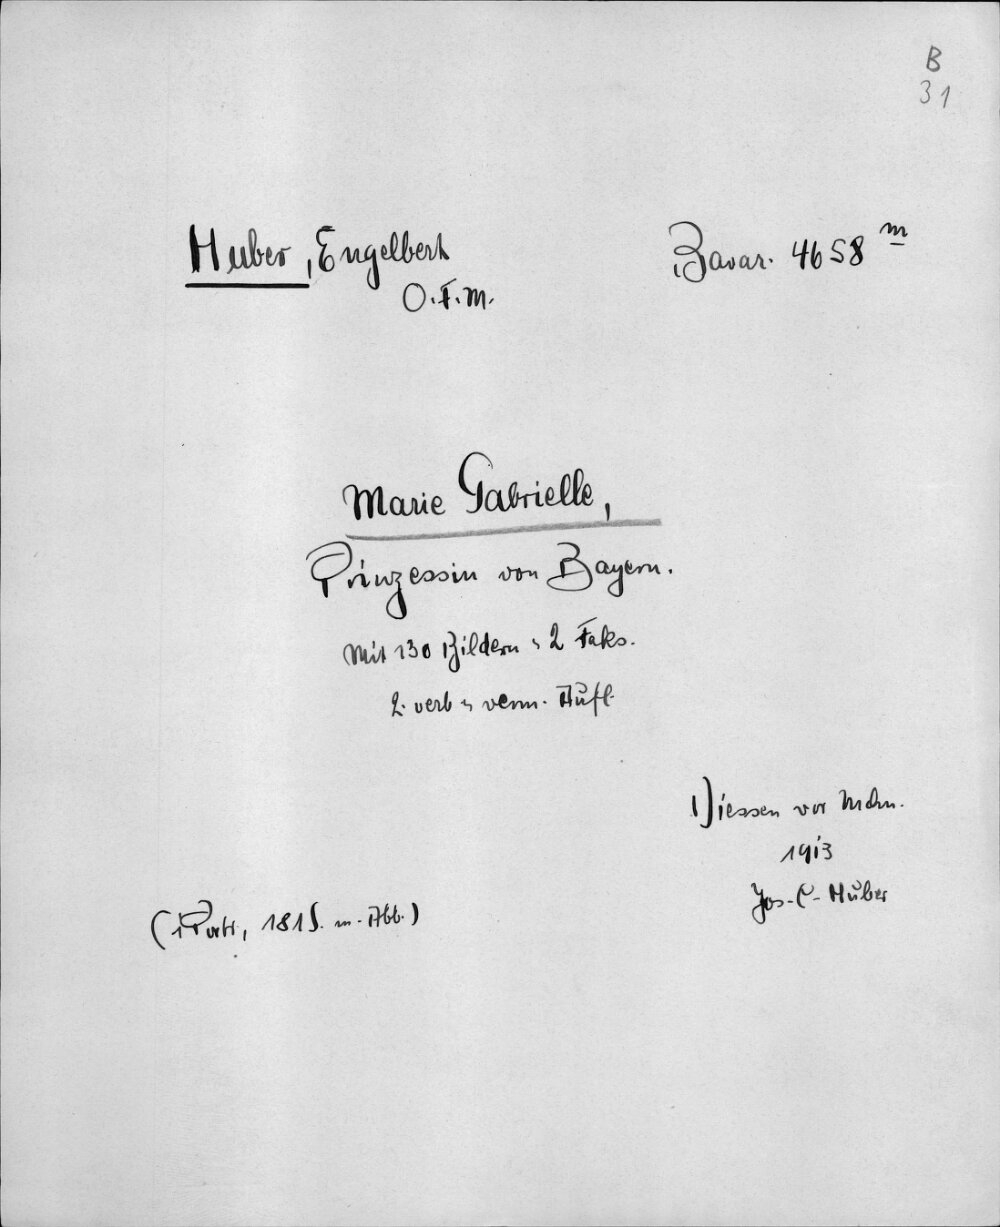 B
31
Huber, Engelbert
Bavar. 4658 m
O.F.M.
Marie Gabrielle,
Prinzessin von Bayern.
Mit 130 Bildern u 2 Faks.
2. verb u verm. Aufl.
Diessen vor Mchn.
1913
Jos. C. Huber
(1 Portr, 181 S. m. Abb.)